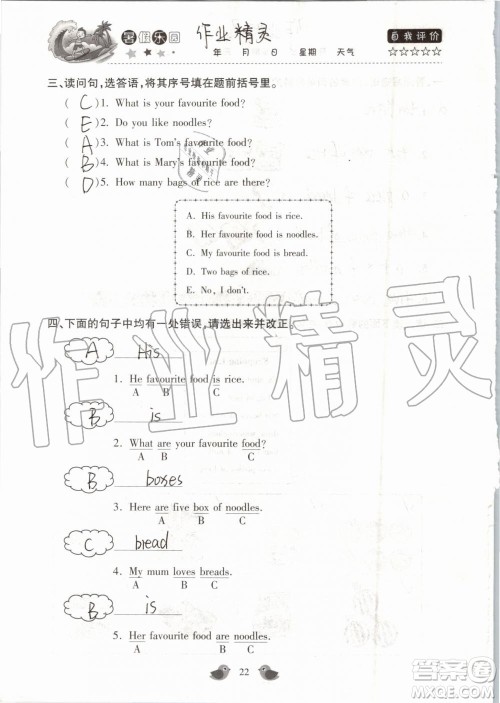 暑假乐园
作业精灵
年 月 日 星期 天气
自我评价
☆☆☆☆☆
三、读问句,选答语,将其序号填在题前括号里。
( C )1. What is your favourite food?
( E )2. Do you like noodles?
( A )3. What is Tom's favourite food?
( B )4. What is Mary's favourite food?
( D )5. How many bags of rice are there?
A. His favourite food is rice.
B. Her favourite food is noodles.
C. My favourite food is bread.
D. Two bags of rice.
E. No, I don't.
四、下面的句子中均有一处错误,请选出来并改正。
A His
1. He favourite food is rice.
A B C
B is
2. What are your favourite food?
A B C
B boxes
3. Here are five box of noodles.
A B C
C bread
4. My mum loves breads.
A B C
B is
5. Her favourite food are noodles.
A B C
22
作业精灵
答案圈
MXQE.COM